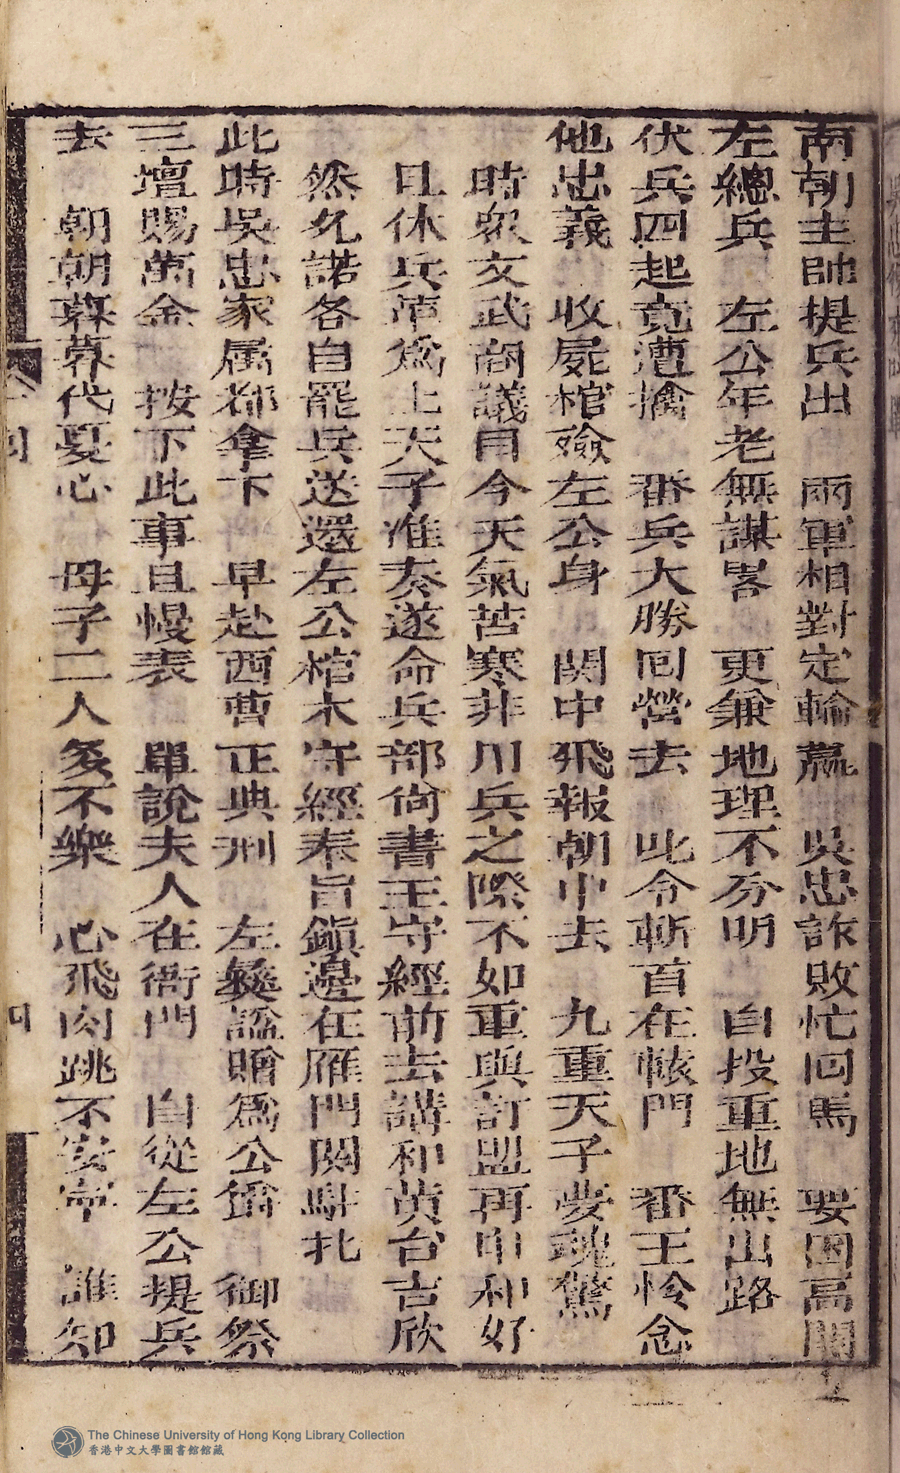 南朝主帥提兵出　兩軍相對定輸贏　吳忠詐敗忙回馬　要困高關
左總兵　左公年老無謀畧　更兼地理不分明　自投重地無出路
伏兵四起竟遭擒　番兵大勝回營去　此令斬首在轅門　番王怜念
他忠義　收屍棺殮左公身　関中飛報朝中去　九重天子夢魂驚
時衆文武啇議目今天氣苦寒非川兵之際不如重與訂盟再申和好
且休兵革為上天子准奏遂命兵部尚書王守經前去講和黄台吉欣
然允諾各自罷兵送還左公棺木守經奉旨鎮邊在雁門関駐扎
此時吳忠家属都拿下　早赴西曹正典刑　左彝諡贈為公爵　御祭
三壇賜萬金　按下此事且慢表　單說夫人在衙門　自從左公提兵
去　朝朝暮暮代憂心　母子二人多不樂　心飛肉跳不安寧　誰知
The Chinese University of Hong Kong Library Collection
香港中文大學圖書館館藏